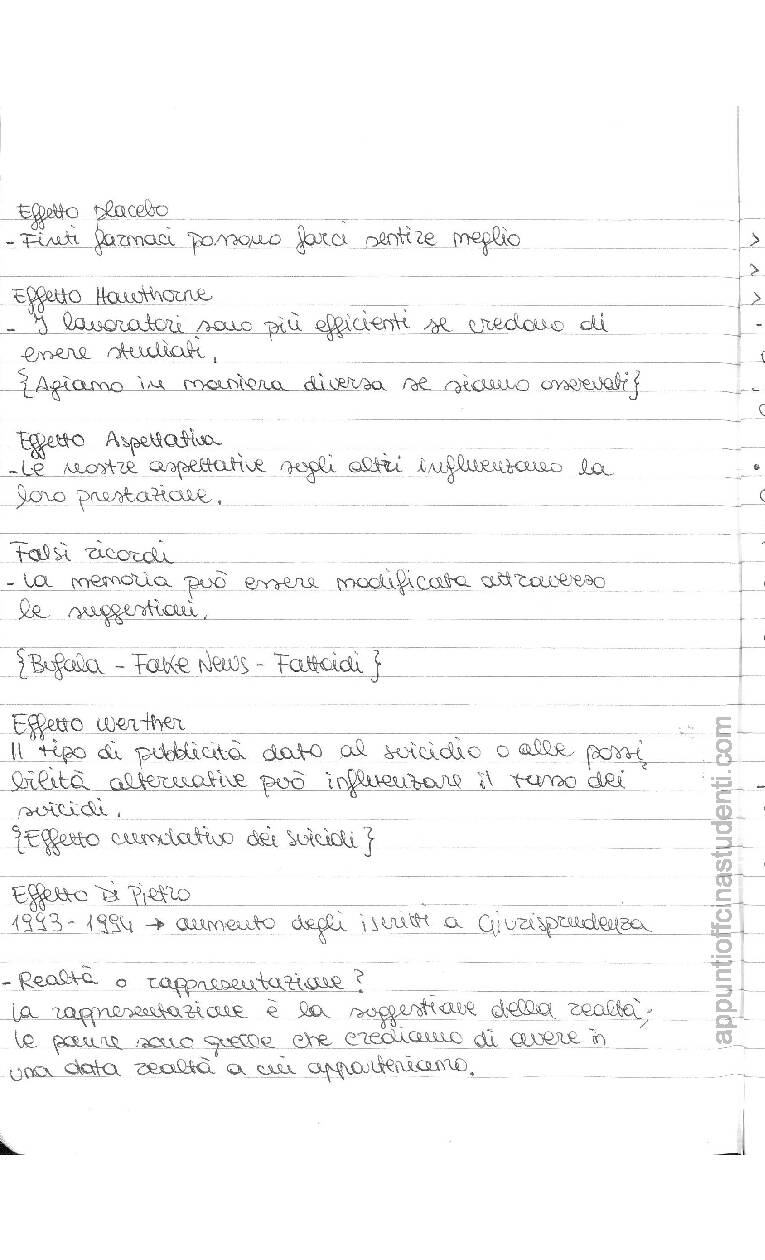 Effetto placebo
- Finti farmaci possono farci sentire meglio
Effetto Hawthorne
- I lavoratori sono più efficienti se credono di
essere studiati.
{Agiamo in maniera diversa se siamo osservati}
Effetto Aspettativa
- Le nostre aspettative sugli altri influenzano la
loro prestazione.
Falsi ricordi
- La memoria può essere modificata attraverso
le suggestioni.
{Bufala - Fake News - Fattoidi}
Effetto Werther
Il tipo di pubblicità dato al suicidio o alle possi
bilità alternative può influenzare il tasso dei
suicidi.
{Effetto cumulativo dei suicidi}
Effetto Di Pietro
1993-1994 → aumento degli iscritti a Giurisprudenza
- Realtà o rappresentazione?
La rappresentazione è la suggestione della realtà;
le paure sono quelle che crediamo di avere in
una data realtà a cui apparteniamo.
appuntiofficinastudenti.com